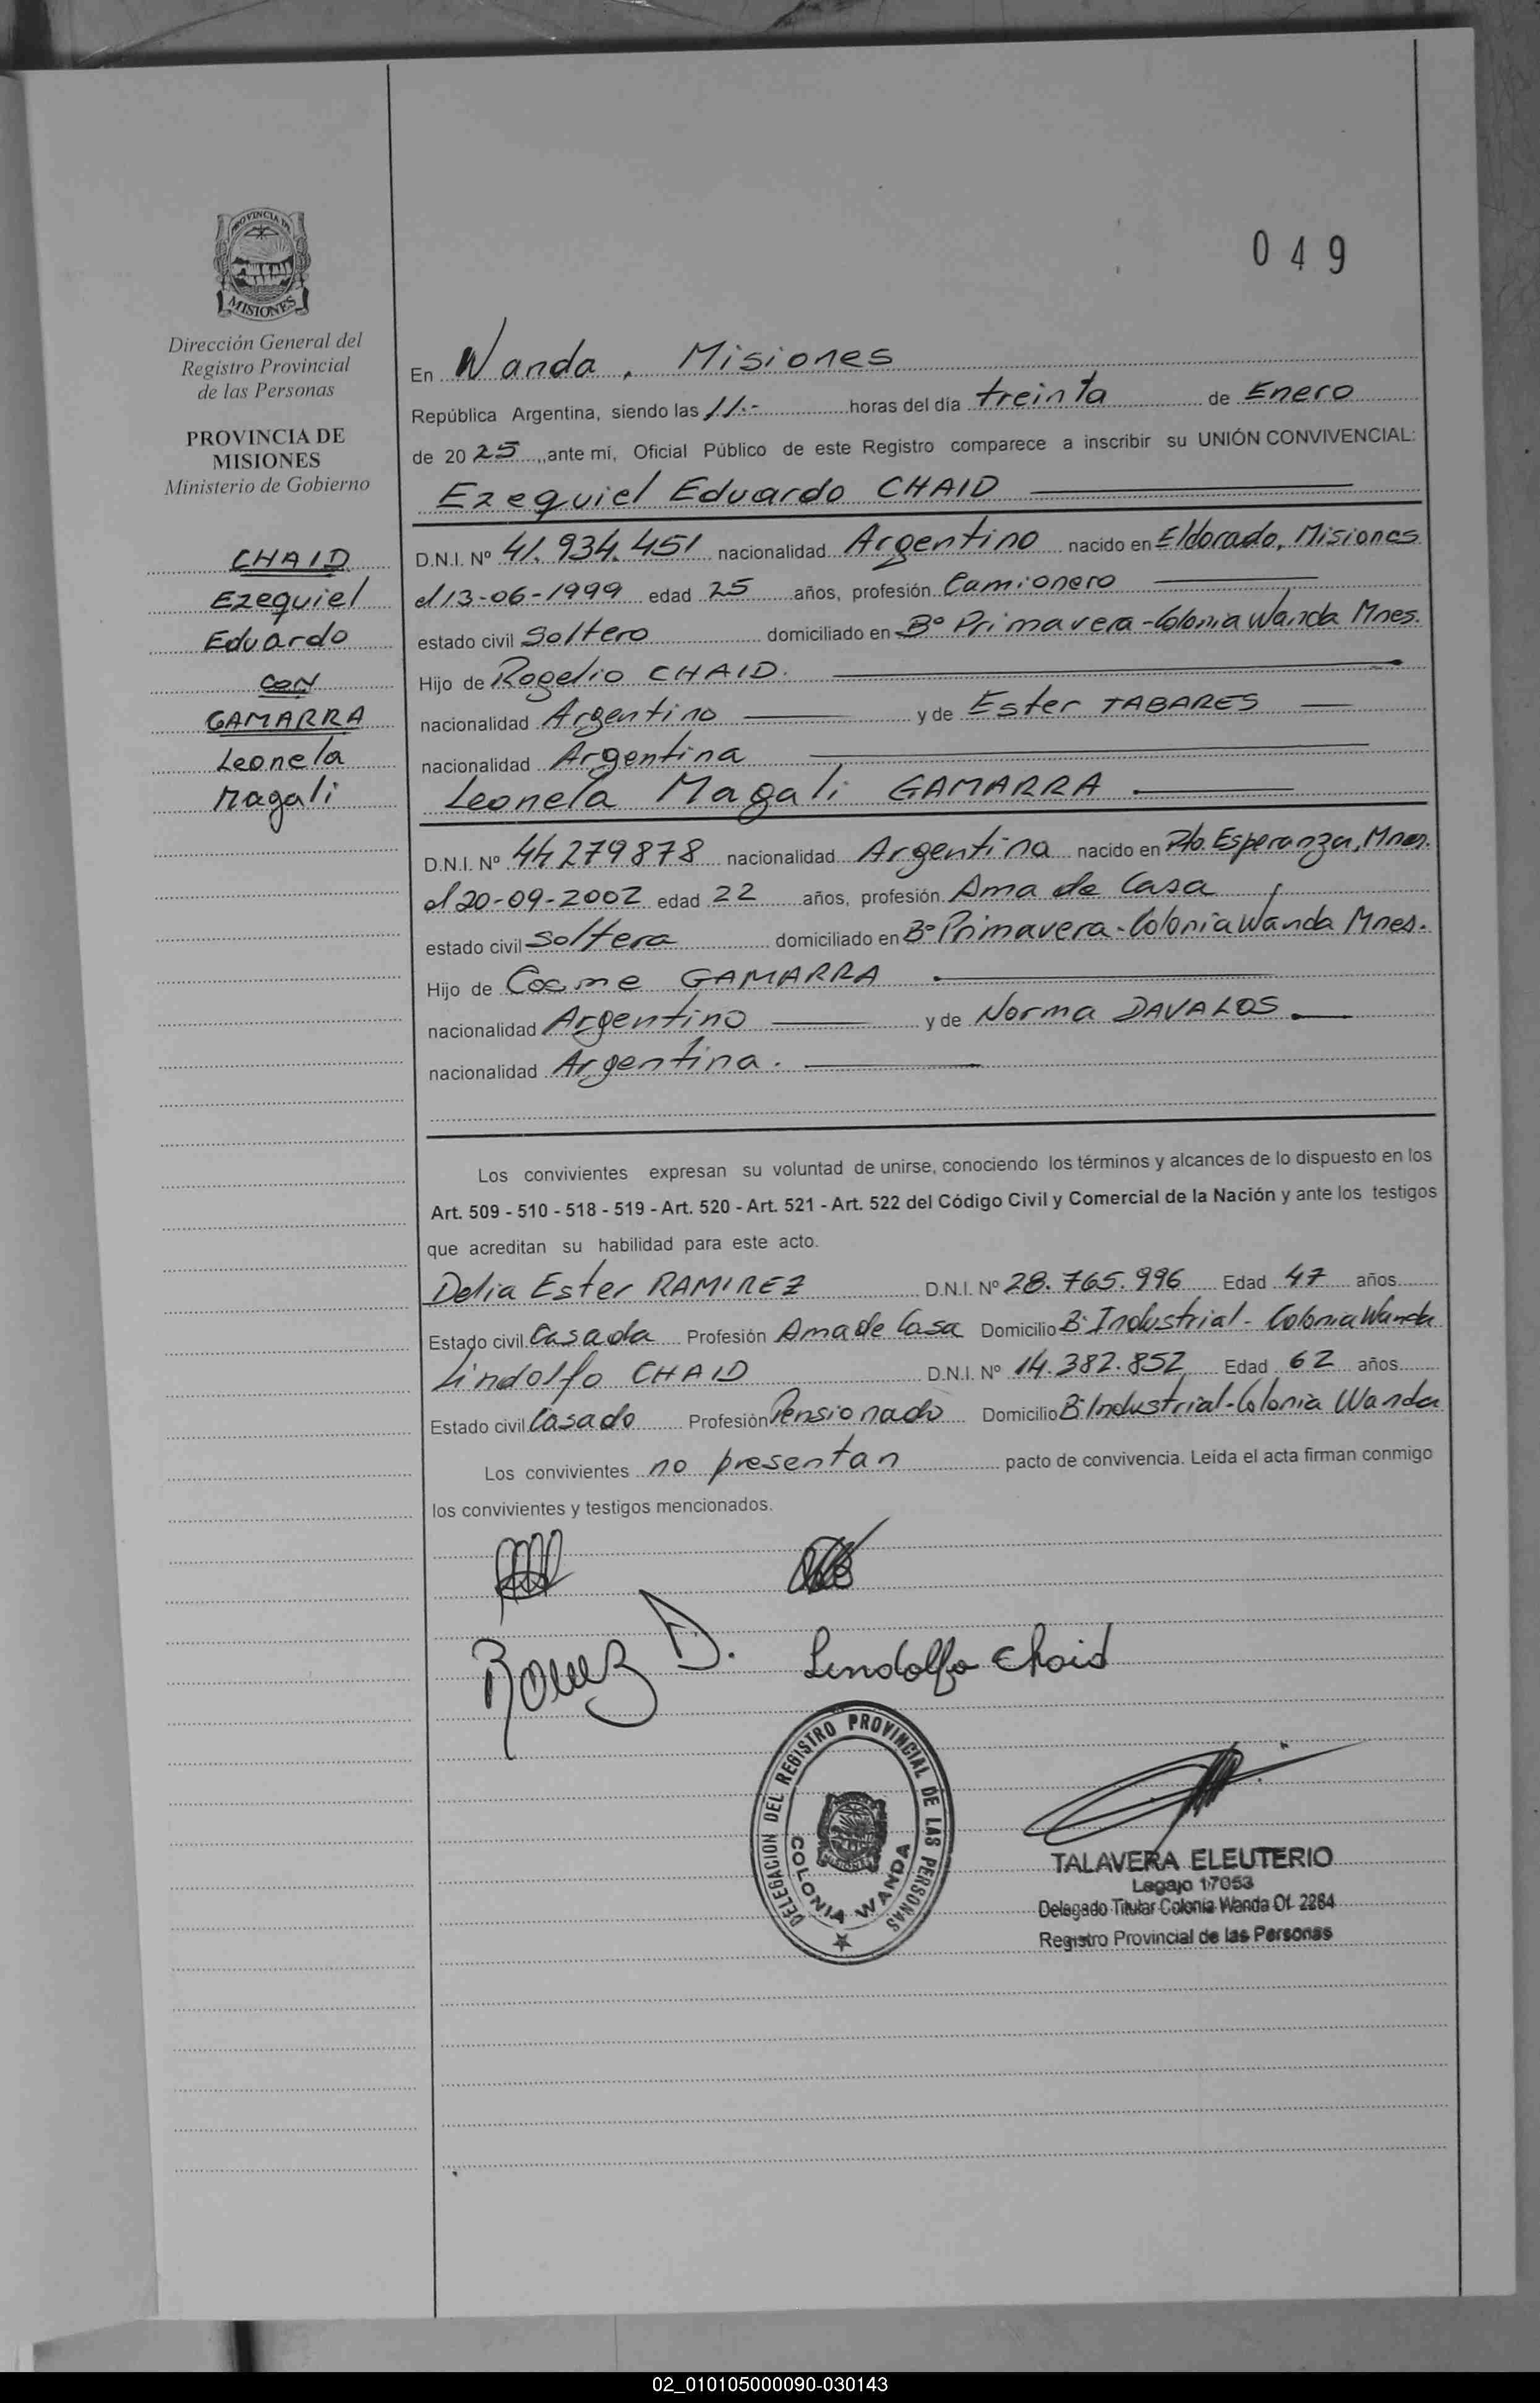 049
PROVINCIA DE
MISIONES
Dirección General del
Registro Provincial
de las Personas
PROVINCIA DE
MISIONES
Ministerio de Gobierno
CHAID
Ezequiel
Eduardo
CON
GAMARRA
Leonela
Magali
En Wanda, Misiones
República Argentina, siendo las 11.- horas del día treinta de Enero
de 2025, ante mí, Oficial Público de este Registro comparece a inscribir su UNIÓN CONVIVENCIAL:
Ezequiel Eduardo CHAID
D.N.I. Nº 41.934.451 nacionalidad Argentino nacido en Eldorado, Misiones
el 13-06-1999 edad 25 años, profesión Camionero
estado civil Soltero domiciliado en Bº Primavera-Colonia Wanda Mnes.
Hijo de Rogelio CHAID.
nacionalidad Argentino y de Ester TABARES
nacionalidad Argentina
Leonela Magali GAMARRA
D.N.I. Nº 44.279878 nacionalidad Argentina nacido en Pto. Esperanza, Mnes.
el 20-09-2002 edad 22 años, profesión Ama de Casa
estado civil Soltera domiciliado en Bº Primavera-Colonia Wanda Mnes.
Hijo de Cosme GAMARRA
nacionalidad Argentino y de Norma DAVALOS
nacionalidad Argentina.
Los convivientes expresan su voluntad de unirse, conociendo los términos y alcances de lo dispuesto en los
Art. 509 - 510 - 518 - 519 - Art. 520 - Art. 521 - Art. 522 del Código Civil y Comercial de la Nación y ante los testigos
que acreditan su habilidad para este acto.
Delia Ester RAMIREZ D.N.I. Nº 28.765.996 Edad 47 años
Estado civil Casada Profesión Ama de Casa Domicilio Bº Industrial - Colonia Wanda
Lindolfo CHAID D.N.I. Nº 14.382.852 Edad 62 años
Estado civil Casado Profesión Pensionado Domicilio Bº Industrial-Colonia Wanda
Los convivientes no presentan pacto de convivencia. Leída el acta firman conmigo
los convivientes y testigos mencionados.
D. Lindolfo Chaid
DELEGACION DEL REGISTRO PROVINCIAL DE LAS PERSONAS
COLONIA WANDA
TALAVERA ELEUTERIO
Legajo 17053
Delegado Titular Colonia Wanda Of. 2284
Registro Provincial de las Personas
02_010105000090-030143